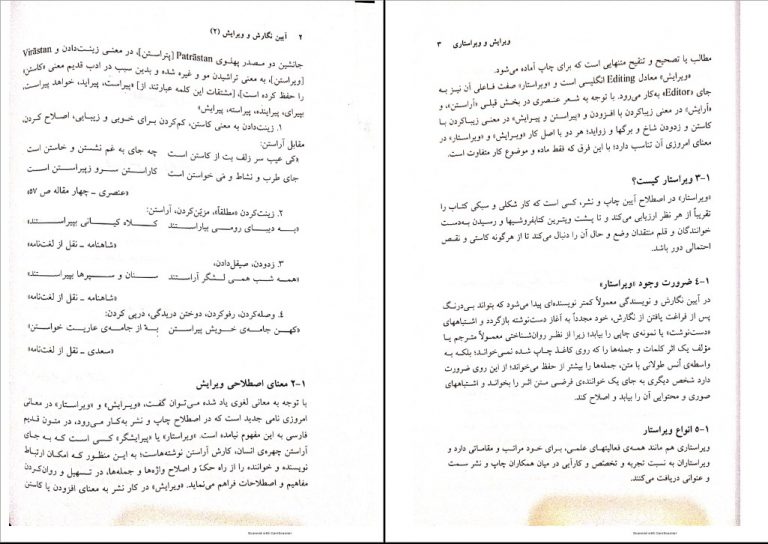 ۲ آیین نگارش و ویرایش (۲)
جانشین دو مصدر پهلوی Patrāstan [پتراستن]، در معنی زینت‌دادن و Virāstan
[ویراستن]، به معنی تراشیدن مو و غیره شده و بدین سبب در ادب قدیم معنی «کاستن»
را حفظ کرده است]، [مشتقات این کلمه عبارتند از] «پیراست، پیراید، خواهد پیراست،
بپیرای، پیراینده، پیراسته، پیرایش»
۱. زینت‌دادن به معنی کاستن، کم‌کردن برای خوبی و زیبایی، اصلاح کردن،
مقابل آراستن:
«کی عیب سر زلف بت از کاستن است چه جای به غم نشستن و خاستن است
جای طرب و نشاط و می خواستن است کاراستن سرو زپیراستن است
«عنصری ـ چهار مقاله ص ۵۷»
۲. زینت‌کردن «مطلقاً»، مزیّن‌کردن، آراستن:
«به دیبای رومی بیاراستند کلاه کیانی بپیراستند»
«شاهنامه ـ نقل از لغت‌نامه»
۳. زدودن، صیقل‌دادن،
«همه شب همی لشگر آراستند سنان و سپرها بپیراستند»
«شاهنامه ـ نقل از لغت‌نامه»
۴. وصله‌کردن، رفوکردن، دوختن دریدگی، درپی کردن:
«کهن جامه‌ی خویش پیراستن بهٔ از جامه‌ی عاریت خواستن»
«سعدی ـ نقل از لغت‌نامه»
۱-۲ معنای اصطلاحی ویرایش
با توجه به معانی لغوی یاد شده می‌توان گفت، «ویرایش» و «ویراستار» در معانی
امروزی نامی جدید است که در اصطلاح چاپ و نشر به‌کار می‌رود، در متون قدیم
فارسی به این مفهوم نیامده است. «ویراستار» یا «پیرایشگر» کسی است که به جای
آراستن چهره‌ی انسان، کارش آراستن نوشته‌هاست؛ به این منظور که امکان ارتباط
نویسنده و خواننده را از راه حکّ و اصلاح واژه‌ها و جمله‌ها، در تسهیل و روان‌کردن
مفاهیم و اصطلاحات فراهم می‌نماید. «ویرایش» در کار نشر به معنای افزودن یا کاستن
Scanned with CamScanner
ویرایش و ویراستاری ۳
مطالب یا تصحیح و تنقیح متنهایی است که برای چاپ آماده می‌شود.
«ویرایش» معادل Editing انگلیسی است و «ویراستار» صفت فاعلی آن نیز به
جای «Editor» به‌کار می‌رود. با توجه به شعر عنصری در بخش قبلی «آراستن»، و
«آرایش» در معنی زیباکردن با افزودن و «پیراستن و پیرایش» در معنی زیباکردن با
کاستن و زدودن شاخ و برگها و زواید؛ هر دو با اصل کار «ویرایش و ویراستار» در
معنای امروزی آن تناسب دارد؛ با این فرق که فقط ماده و موضوع کار متفاوت است.
۱-۳ ویراستار کیست؟
«ویراستار» در اصطلاح آیین چاپ و نشر، کسی است که کار شکلی و سبکی کتاب را
تقریباً از هر نظر ارزیابی می‌کند و تا پشت ویترین کتابفروشیها و رسیدن به‌دست
خوانندگان و قلم منتقدان وضع و حال آن را دنبال می‌کند تا از هرگونه کاستی و نقص
احتمالی دور باشد.
۱-۴ ضرورت وجود «ویراستار»
در آیین نگارش و نویسندگی معمولاً کمتر نویسنده‌ای پیدا می‌شود که بتواند بی‌درنگ
پس از فراغت یافتن از نگارش، خود مجدداً به آغاز دست‌نوشته بازگردد و اشتباههای
«دست‌نوشت» یا نمونه‌ی چاپی را بیابد؛ زیرا از نظر روان‌شناختی معمولاً مترجم یا
مؤلف یک اثر کلمات و جمله‌ها را که روی کاغذ چاپ شده نمی‌خواند؛ بلکه به
واسطه‌ی اُنس طولانی با متن، جمله‌ها را بیشتر از حفظ می‌خواند؛ از این روی ضرورت
دارد شخص دیگری به جای یک خواننده‌ی فرضی متن اثر را بخواند و اشتباههای
صوری و محتوایی آن را بیابد و اصلاح کند.
۱-۵ انواع ویراستار
ویراستاری هم مانند همه‌ی فعالیتهای علمی، برای خود مراتب و مقاماتی دارد و
ویراستاران به نسبت تجربه و تخصّص و کارآیی در میان همکاران چاپ و نشر سمت
و عنوانی دریافت می‌کنند.
Scanned with CamScanner